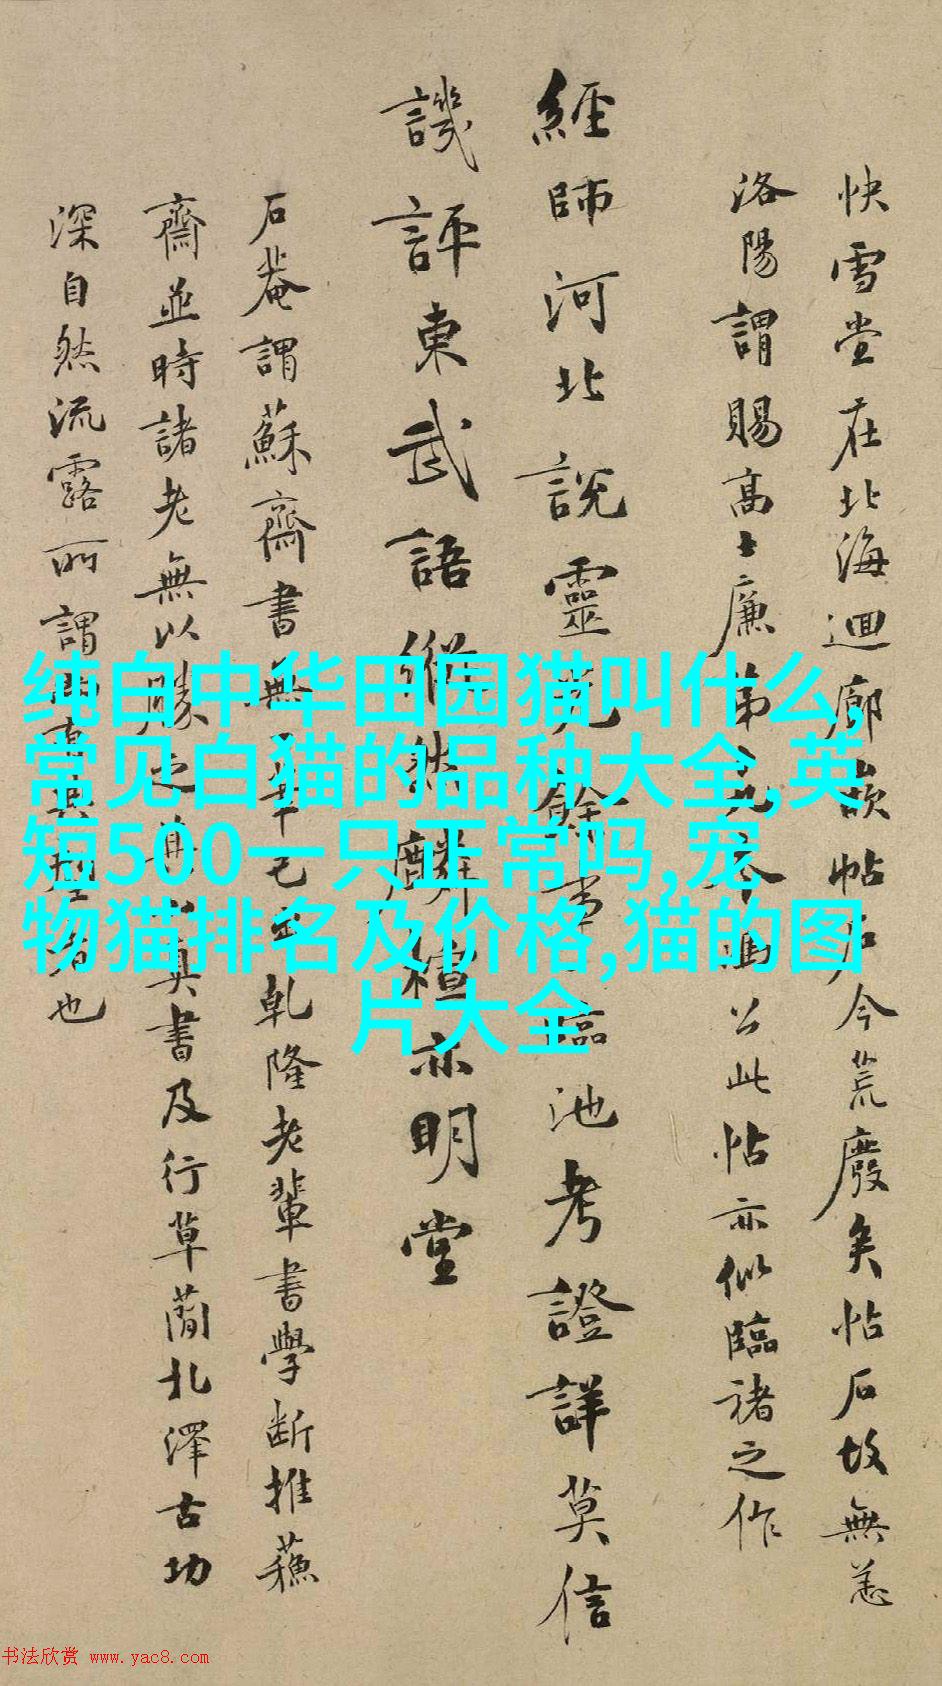 快雪堂在北海迴廊嵌帖石今荒廢矣帖石故無恙
洛陽謂賜高士廉弟今公此帖亦似臨褚之作
經師河北說靈芝餘事臨池考證詳莫信
譏評東武語縱然麟楦亦明堂
石菴謂蘇齋書無一筆己出乾隆老輩書學斷推蘓
齋並時諸老無以勝之真書及行草蘭北澤古功
深自然流露所謂者也
纯白中华田园猫叫什么,
常见白猫的品种大全,英
短500一只正常吗,宠
物猫排名及价格,猫的图
片大全
书法欣赏 www.yac8.com